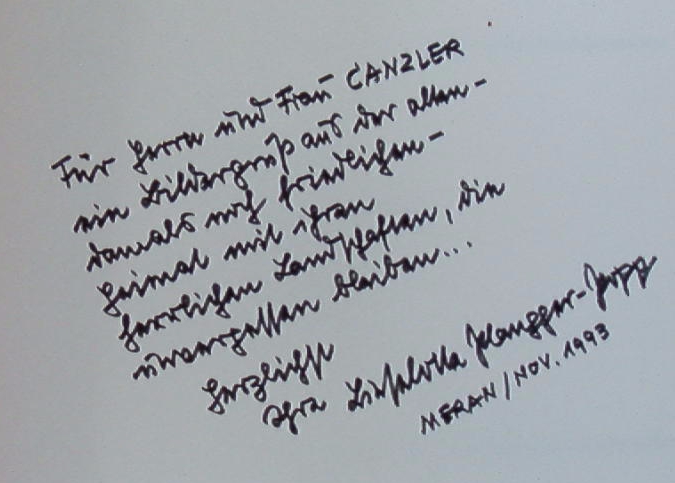 Für Herrn und Frau CANZLER
ein Bildergruß aus der alten -
damals noch friedlichen -
Heimat mit ihren
herrlichen Landschaften, die
unvergessen bleiben...
Herzlichst
Ihre Lieselotte
MERAN/NOV. 1993